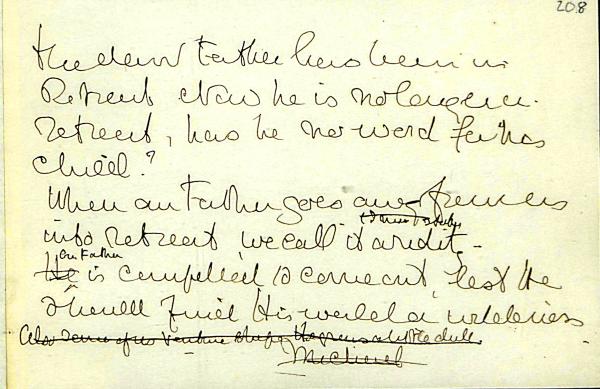 208
the dear Father has been in
Retreat Now he is no longer in
retreat, has he no word for his
child?
When our Father goes away from us
into retreat we call it
our Father
He is compelled to come out, lest he
should find His world a wilderness
Michael